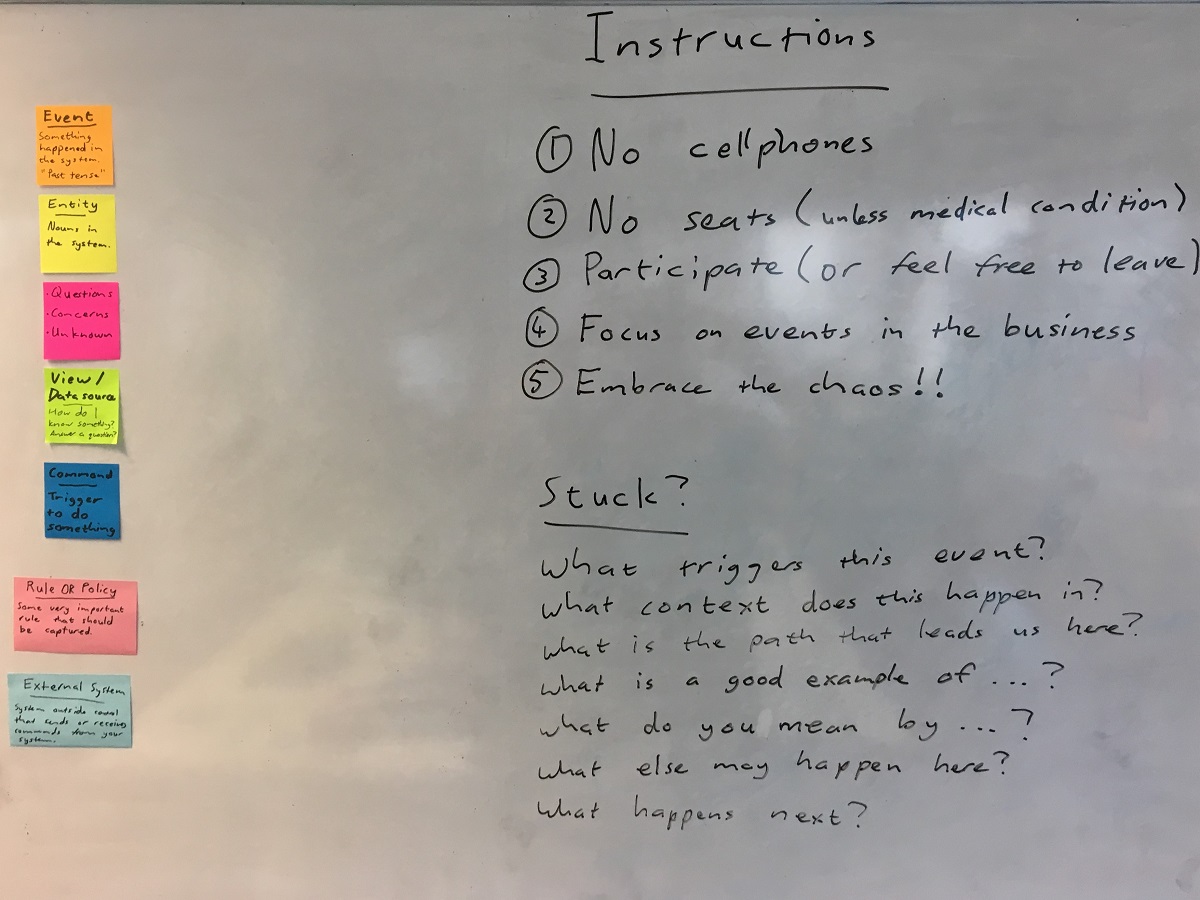 Event
Something
happened in
the system.
"Past tense"
Entity
Nouns in
the system.
· Questions
· Concerns
· Unknown
View /
Data source
How do I
know something?
Answer a question?
Command
Trigger
to do
something
Rule OR Policy
Some very important
rule that should
be captured.
External System
System outside
that sends or receives
commands from your
system.
Instructions
① No cellphones
② No seats (unless medical condition)
③ Participate (or feel free to leave)
④ Focus on events in the business
⑤ Embrace the chaos!!
Stuck?
What triggers this event?
What context does this happen in?
What is the path that leads us here?
What is a good example of ... ?
What do you mean by ... ?
What else may happen here?
What happens next?